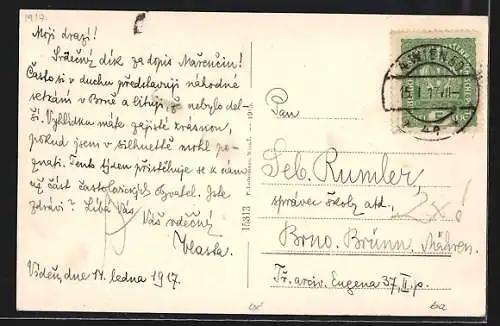 1917.
Moji drazí!
Srdečný dík za dopis Mařenčin!
Často si v duchu představuji náhodné
setkání v Brně a lituji, že nebylo del-
ší. Vyhlídku máte zajisté krásnou,
pokud jsem v silhuettě mohl po-
znati. Tento týden přistěhuje se k nám
už část častolovických obyvatel. Jste
zdrávi? Líbá Vás
Váš vděčný
Vlasta.
Vídeň, dne 14. ledna 1917.
15313
Pan
Seb. Rumler,
správce školy atd.,
2x!
Brno. Brünn, Mähren.
Tř. arciv. Eugena 37, II. p.
WIEN
15. I. 17
4a
6a